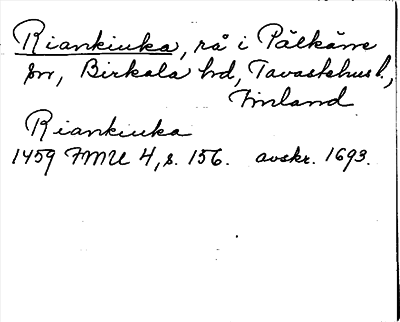 Riankiuka, rå i Pälkäne
sn, Birkala hd, Tavastehus l.,
Finland
Riankiuka
1459 FMU 4, s. 156. avskr. 1693.